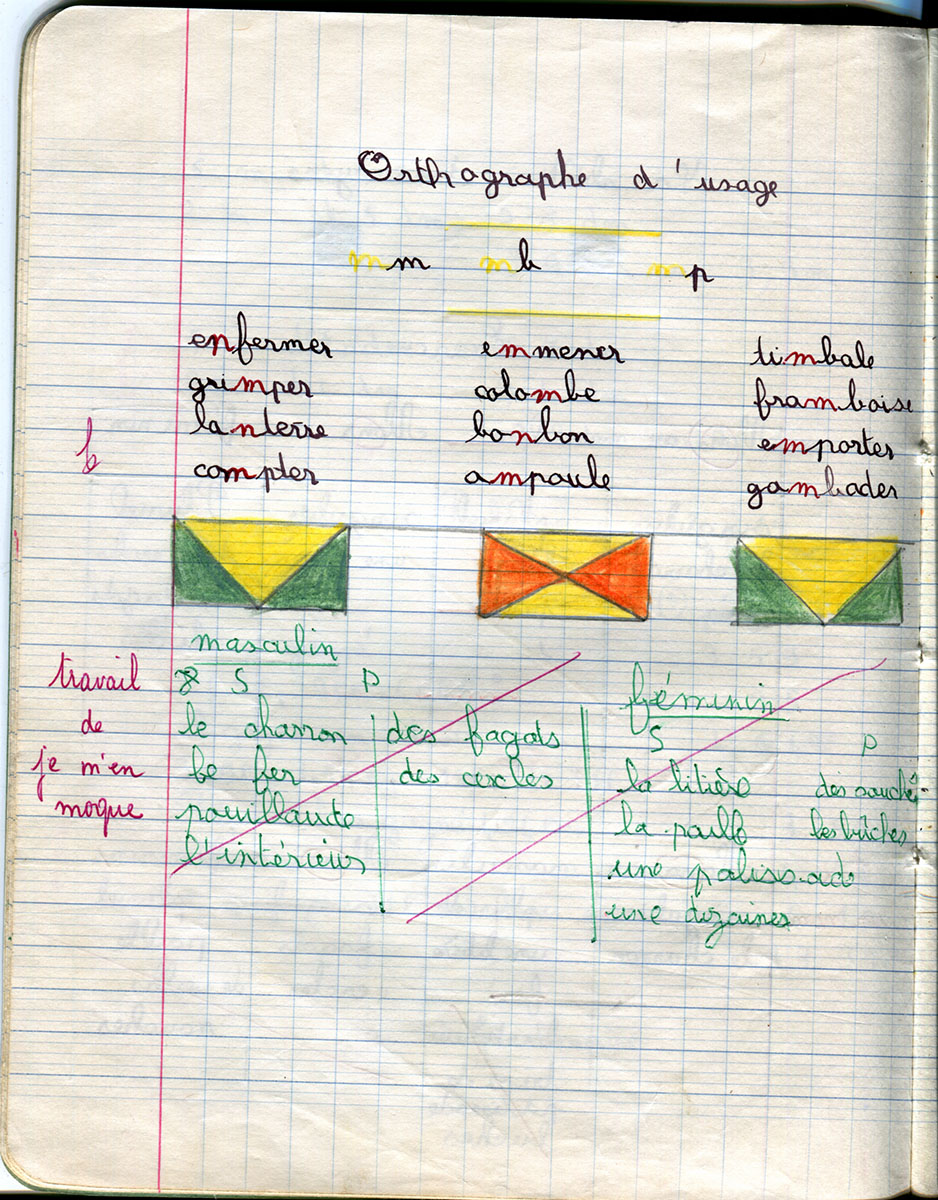 Orthographe d'usage
mm mb mp
enfermer emmener timbale
grimper colombe framboise
lanterne bonbon emporter
b
compter ampoule gambader
masculin
travail de je m'en moque
S P
féminin
S P
le charron des fagots
le fer des cercles
pouillaude
l'intérieur
la litière des souche
la paille les bûches
une palissade
une dizaines